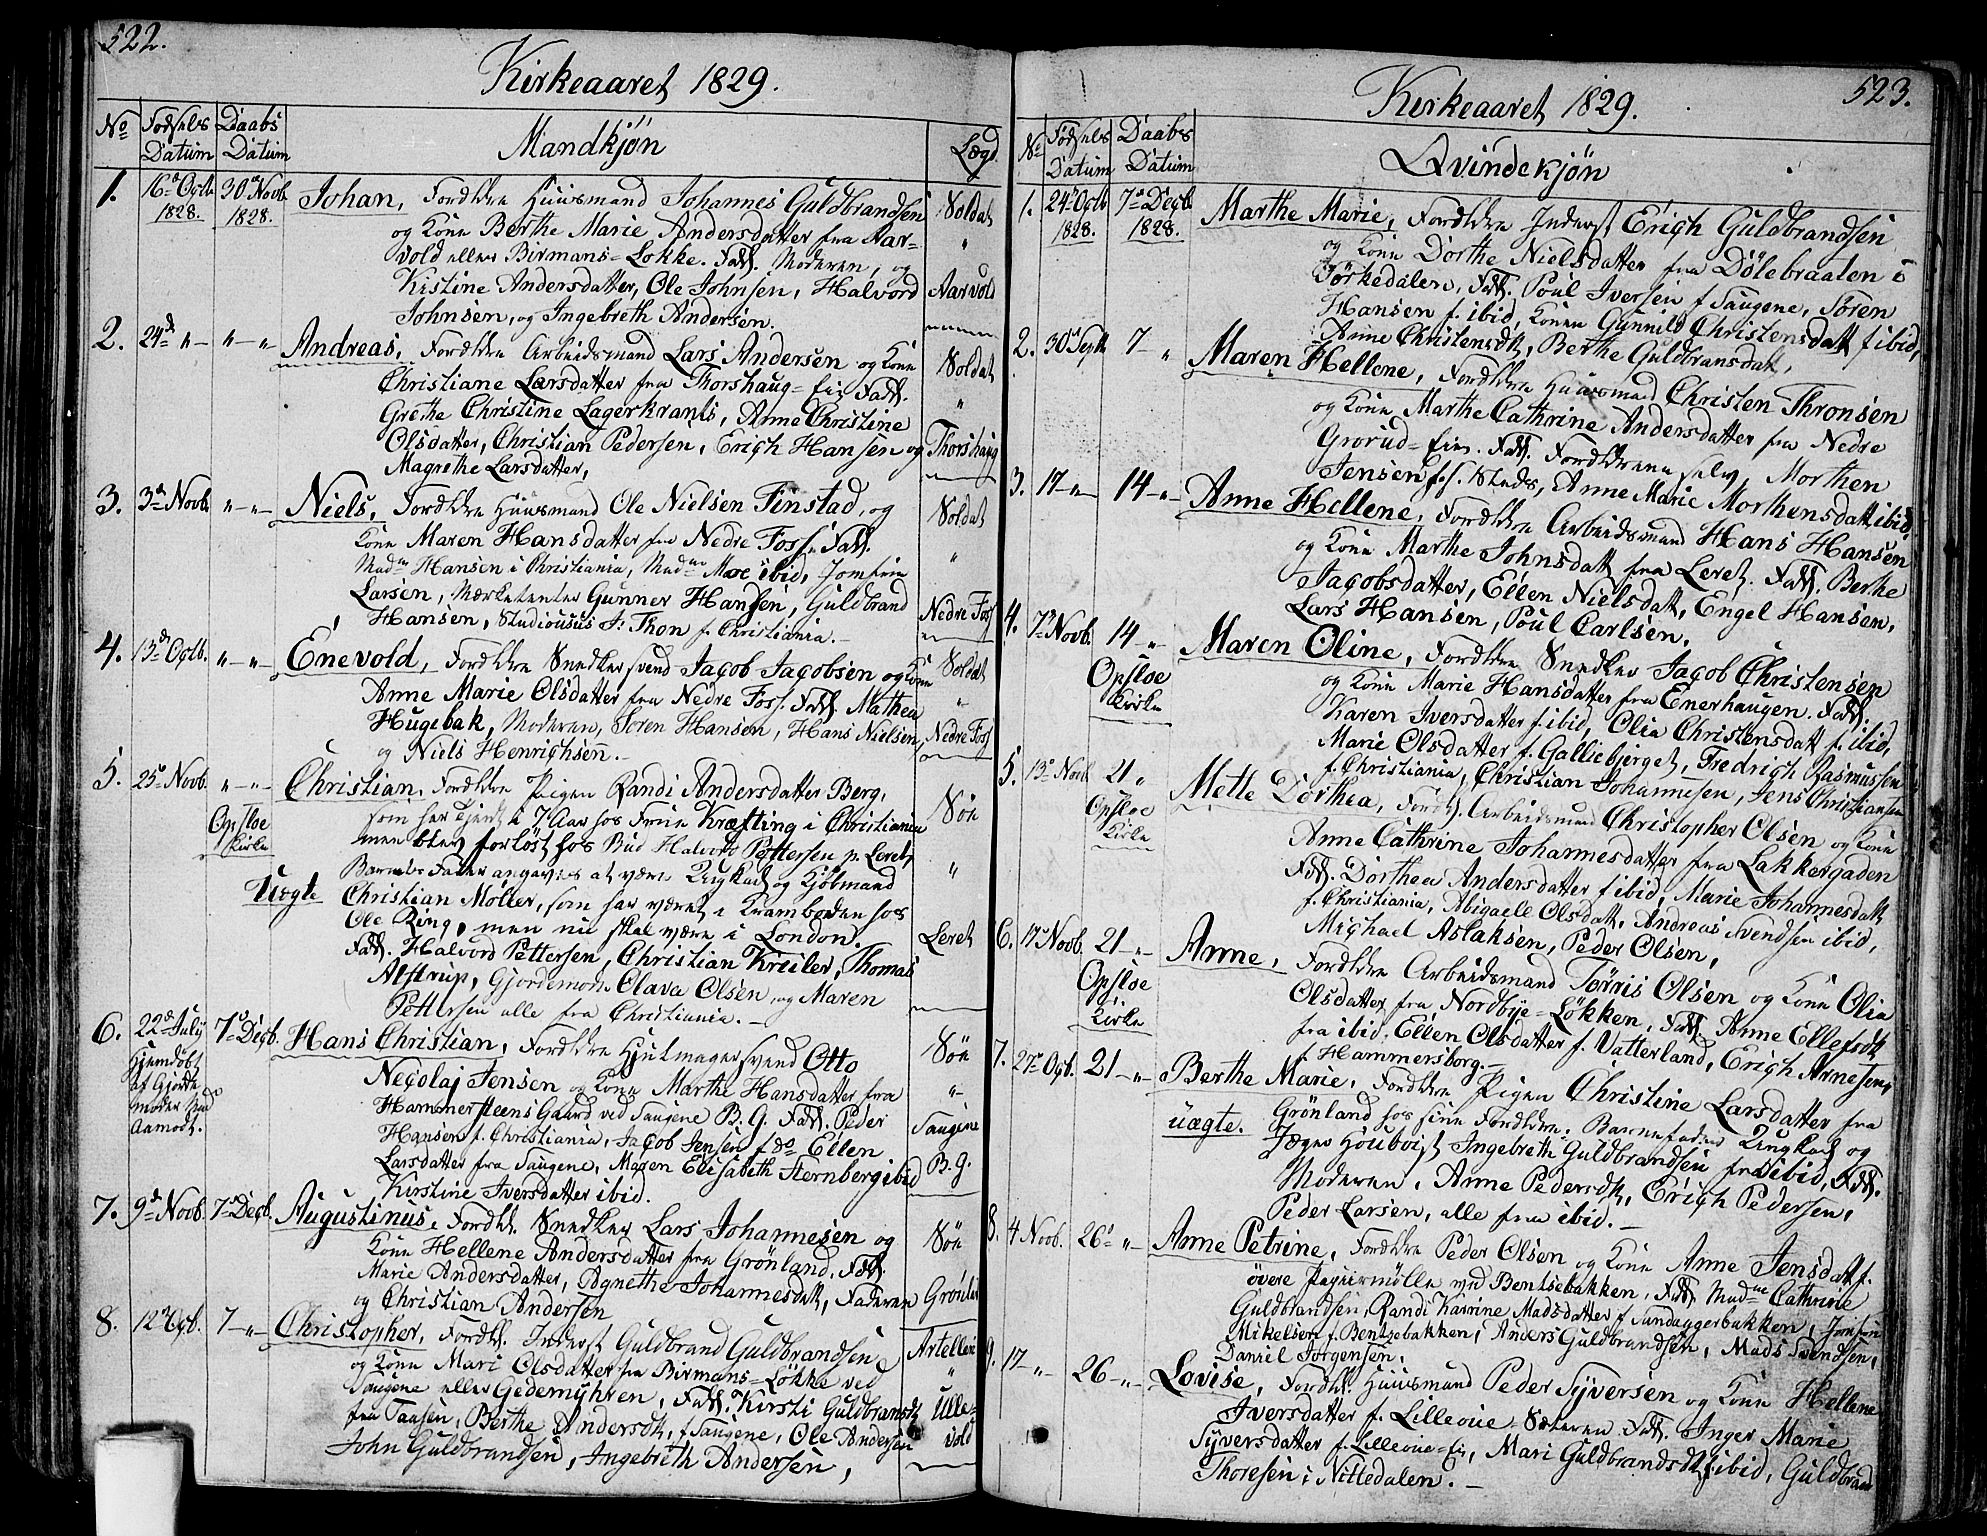 522.
Kirkeaaret 1829.
No Fødsels Datum Daabs Datum Mandkjøn Lægd
1. 16de Octb. 1828. 30te Novb. 1828. Johan, Forældre Huusmand Johannes Guldbrandsen Soldat
og Kone Berthe Marie Andersdatter fra Aar- "
vold eller Birmans-Løkke. Fadd. Moderen, og
Kistine Andersdatter, Ole Johnsen, Halvord Aarvold
Johnsen, og Ingebreth Andersen.
2. 24de "– "–" Andreas, Forældre Arbeidsmand Lars Andersen og Kone Soldat
Christiane Larsdatter fra Thorshaug-Eie Fadd.
Grethe Christine Lagerkrants, Anne Christine "
Olsdatter, Christian Pedersen, Erich Hansen og Thorshaug
Magrethe Larsdatter,
3. 3de Novb. "–"– Niels, Forældre Huusmand Ole Nielsen Finstad, og Soldat
Kone Maren Hansdatter fra Nedre Foss. Fadd.
Madm Hansen i Christiania, Madme Moe ibid, Jomfrue "
Larsen, Marketenter Gunner Hansen, Guldbrand Nedre Foss
Hansen, Studiousus J: Thon f. Christiania.–
4. 13de Octb. "–"– Enevold, Forældre Snedkersvend Jacob Jacobsen og Kone Soldat
Anne Marie Olsdatter fra Nedre Foss. Fadd. Mathea "
Hugebak, Moderen, Søren Hansen, Hans Nielsen, Nedre Foss
og Niels Henrichsen.–
5. 25de Novb. "–"– Christian, Forældre Pigen Randi Andersdatter Berg,
Opsloe Kirke som har tjent i 7 Aar hos Frue Kræfting i Christiania Søe
men blev forløst hos Bud Halvord Pettersen p. Leret,
Barnets Fader angaves at være Ungkarl og Kjøbmand "
Uægte Christian Møller, som har været i Kramboden hos
Ole Ring, men nu skal være i London.
Fadd. Halvord Pettersen, Christian Kreiler, Thomas Leret
Alstrup, Gjordemor Olava Olsen, og Maren
Pettersen alle fra Christiania.–
6. 22de July 7de Decb. Hans Christian, Forældre Hjulmagersvend Otto Søe
Hjemdøbt af Gjorde moder Mad Aamodt. Necolaj Jensen og Kone Marthe Hansdatter fra "
Hammersteens Gaard ved Saugene B. G. Fadd. Peder
Hansen f. Christiania, Jacob Jensen f. do Ellen Saugene
Larsdatter fra Saugene, Maren Elisabeth Sternberg ibid B. G.
Kirstine Iversdatter ibid.
7. 9de Novb. 7de Decb. Augustinus, Forældr. Snedker Lars Johannesen og Søe
Kone Hellene Andersdatter fra Grønland, Fadd.
Marie Andersdatter, Agnethe Johannesdatt, Faderen Grønlan
og Christian Andersen
8. 12 Octb. 7–"– Christopher, Forældr. Inderst Guldbrand Guldbrandsen, Artellerie
og Kone Mari Olsdatter fra Birmans-Løkke ved "
Saugene eller Gedemyhren, Fadd. Kirsti Guldbransdt Ulle-
fra Taasen, Berthe Andersdt, f. Saugene, Ole Andersen vold
John Guldbrandsen, Ingebreth Andersen,
523.
Kirkeaaret 1829.
No Fødsels Datum Daabs Datum Qvindekjøn
1. 24de Octb. 1828. 7de Decb. 1828. Marthe Marie, Forældre Inderst Erich Guldbrandsen
og Kone Dorthe Nielsdatter fra Dølebraaten i
Sørkedalen, Fadd. Poul Iversen f. Saugene, Søren
Hansen f. ibid, Konen Gunnild Christensdatt f. ibid,
Anne Christensdt, Berthe Guldbransdat,
2. 30te Septb. 7–" Maren Hellene, Forældre Huusmand Christen Thronsen
og Kone Marthe Cathrine Andersdatter fra Nedre
Grorud-Eie. Fadd. Forældrene selv, Morthen
Jensen f. s. Steds, Anne Marie Morthensdatt, ibid.
3. 17–"– 14–"– Anne Hellene, Forældre Arbeidsmand Hans Hansen
og Kone Marthe Johnsdatt fra Leret. Fadd. Berthe
Jacobsdatter, Ellen Nielsdatt, Engel Hansen,
Lars Hansen, Poul Carlsen.
4. 7de Novb. 14 " Opsloe Kirke Maren Oline, Forældre Snedker Jacob Christensen
og Kone Marie Hansdatter fra Enerhaugen. Fadd.
Karen Iversdatter f. ibid, Olia Christensdatt f. ibid,
Marie Olsdatter f. Galliebjerget, Fredrich Rasmussen
f. Christiania, Christian Johannesen, Jens Christiansen
5. 13de Novb. 21 " Opsloe Kirke Mette Dorthea, Forældr. Arbeidsmand Christopher Olsen og Kone
Anne Cathrine Johannesdatter fra Lakkergaden
Fadd. Dorthea Andersdatter f ibid, Marie Johannesdatt
f. Christiania, Abigaele Olsdatt, Andreas Svendsen ibid,
Michael Aslaksen, Peder Olsen,
6. 17de Novb. 21–"– Opsloe Kirke Anne, Forældre Arbeidsmand Tørris Olsen og Kone Olia
Olsdatter fra Nordbye-Løkken, Fadd. Anne Ellefsdt
fra ibid. Ellen Olsdatter f. Vatterland, Erich Arnesen,
f. Hammersborg.–
7. 27de Octb. 21–"– Berthe Marie, Forældre Pigen Christine Larsdatter fra
uægte. Grønland hos sine Forældre, Barnefader Ungkarl og
Jæger Houboist Ingebreth Guldbrandsen fra ibid, Fadd.
Moderen, Anne Pedersdt, Erich Pedersen,
Peder Larsen, alle fra ibid.–
8. 4 Novb. 26de "– Anne Petrine, Forældre Peder Olsen og Kone Anne Jensdatt f.
øvere Papiirmølle ved Bentsebakken, Fadd. Madme Cathrine
Guldbrandsen, Randi Katrine Madsdatter f. Sandagerbakken, Jomfrue
Mikelsen f. Bentsebakken, Anders Guldbrandsen, Mads Svendsen,
Daniel Jørgensen,
9. 17–" 26–"– Lovise, Forældr. Huusmand Peder Syversen og Kone Hellene
Iversdatter f. Lilleoie-Sæteren Fadd. Inger Marie
Syversdatter f. Lilleoie-Eie, Mari Guldbrandsdt f. ibid, Guldbrand
Thoresen i Nittedalen.–